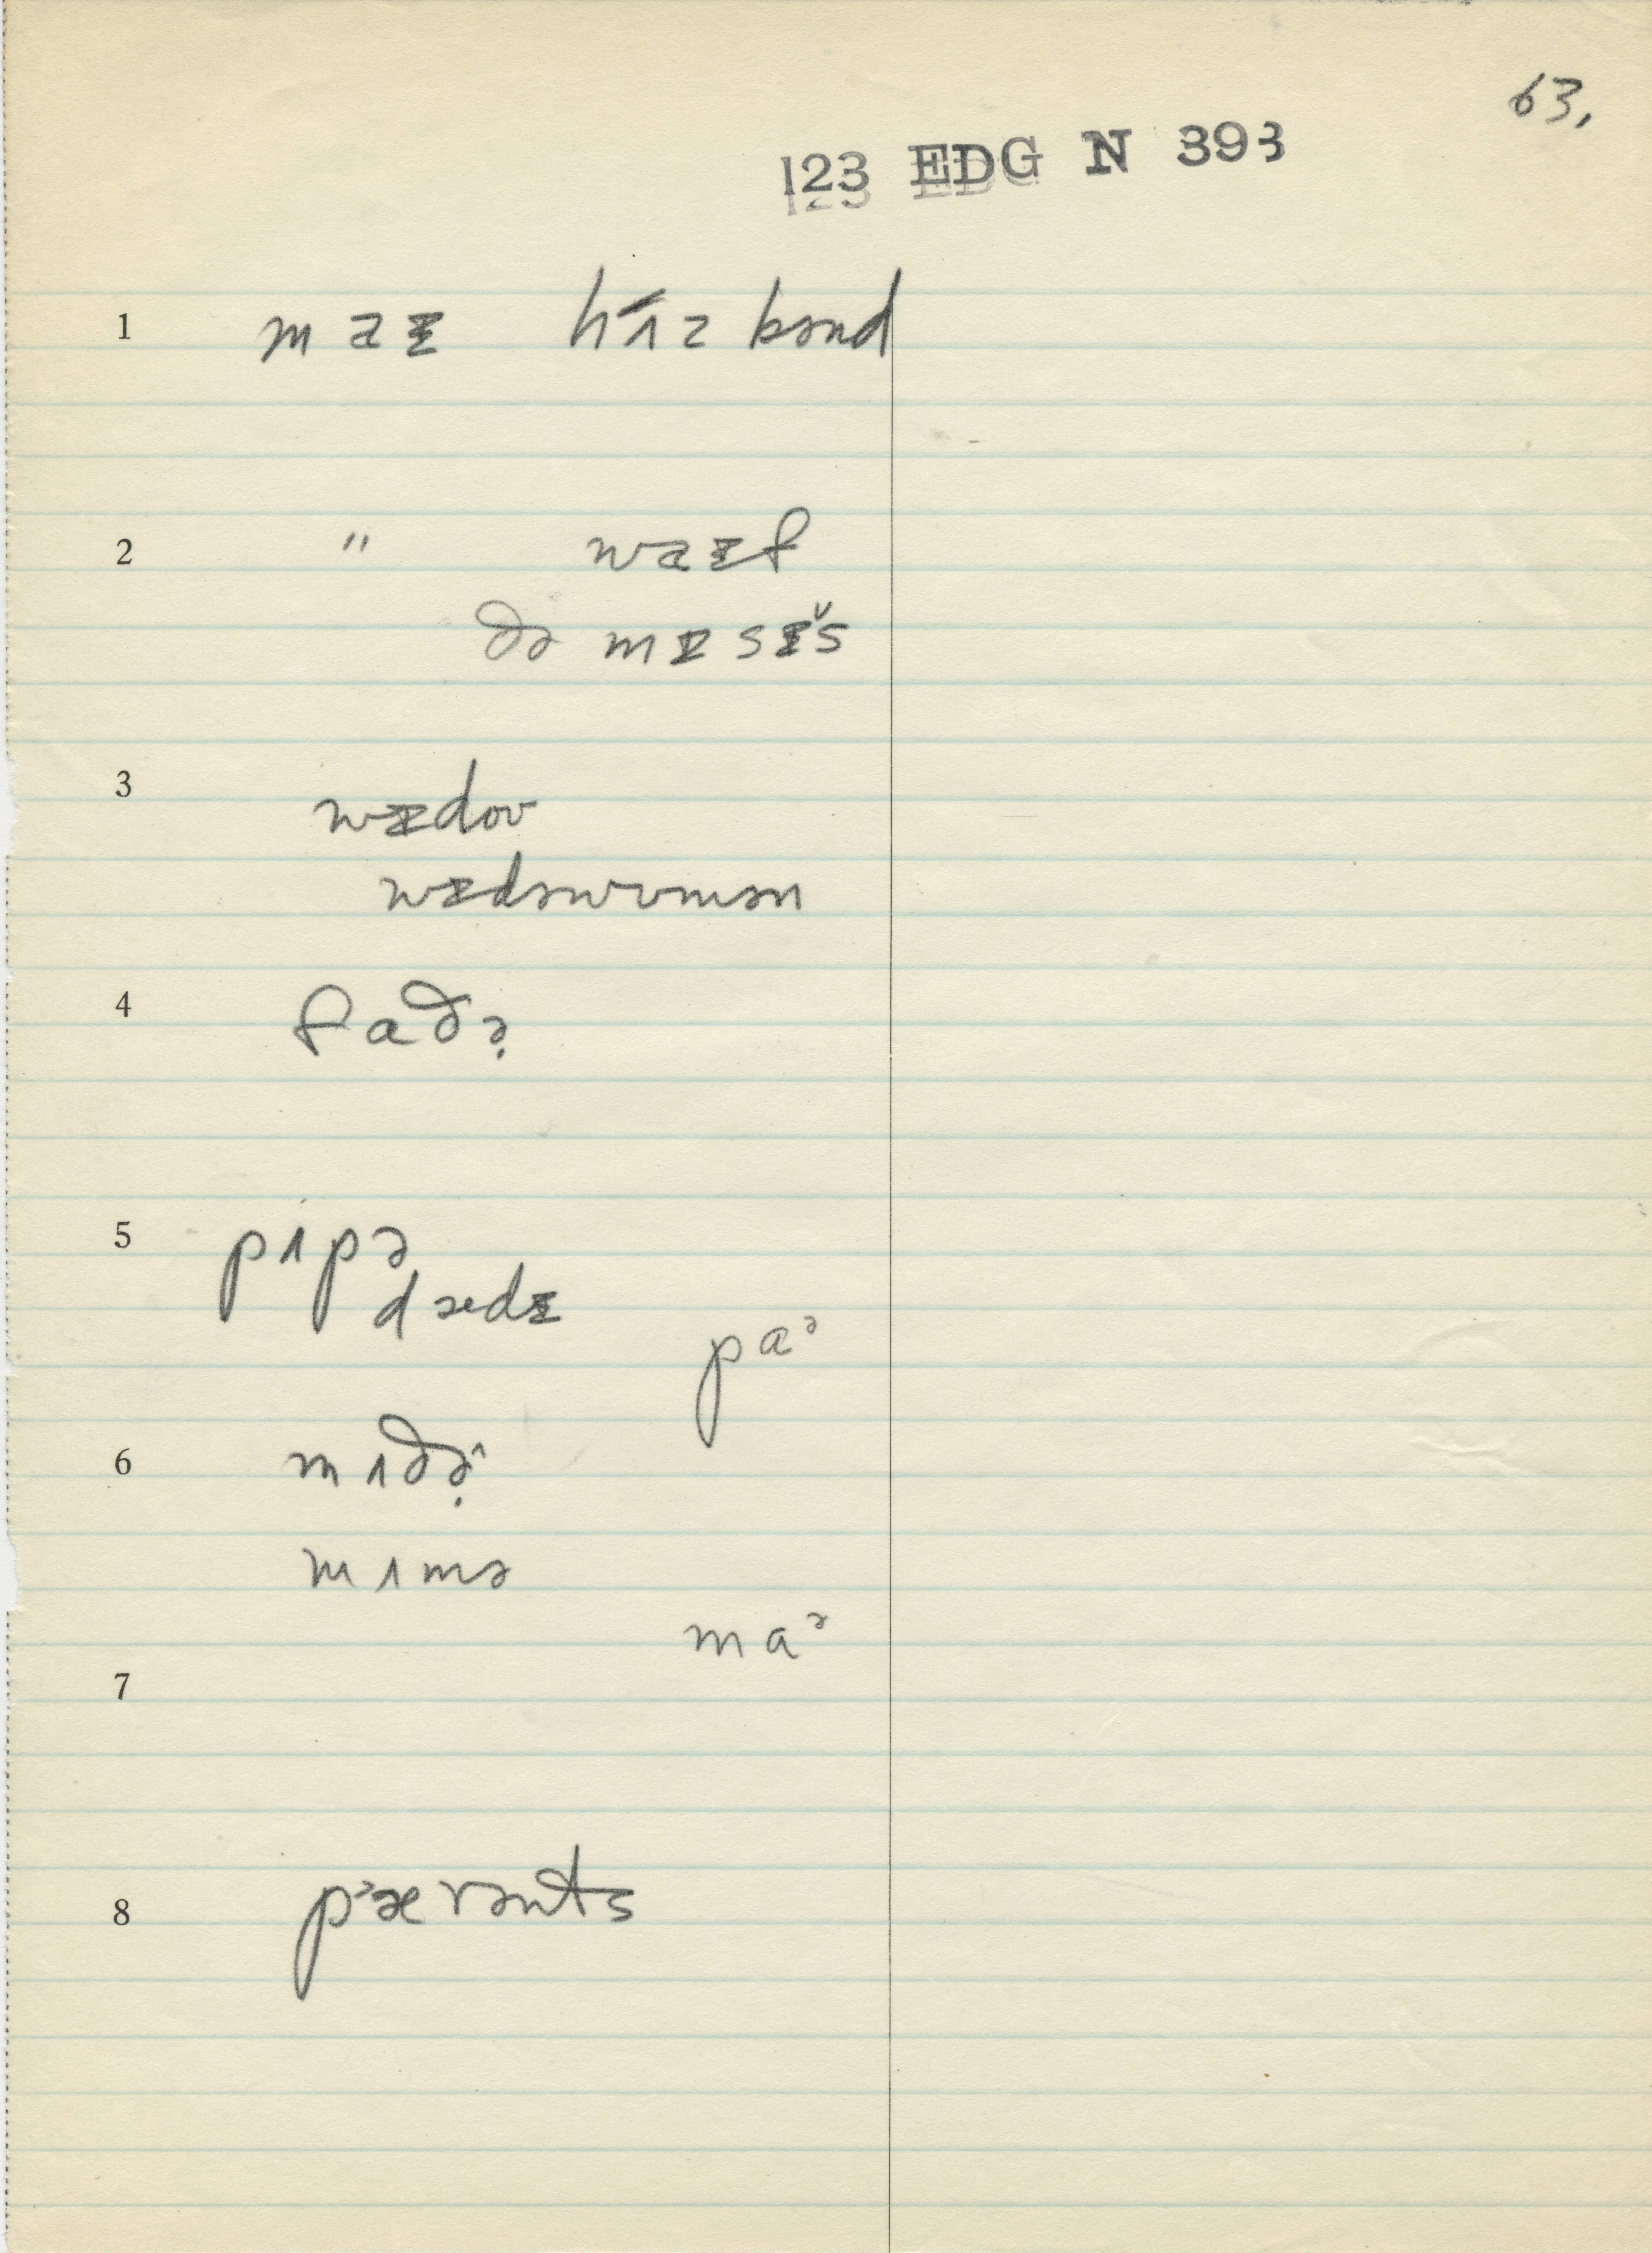 63.
123 EDG N 393
1 maɪ hʌ́zbənd
2 " waɪf
ðə mɪsɪš
3 wɪdoʊ
wɪdəwʊmən
4 faðə̣
5 pʌpə
dædɪ
paᵊ
6 mʌðə̣^
mʌmə
maᵊ
7
8 pᵊærənts